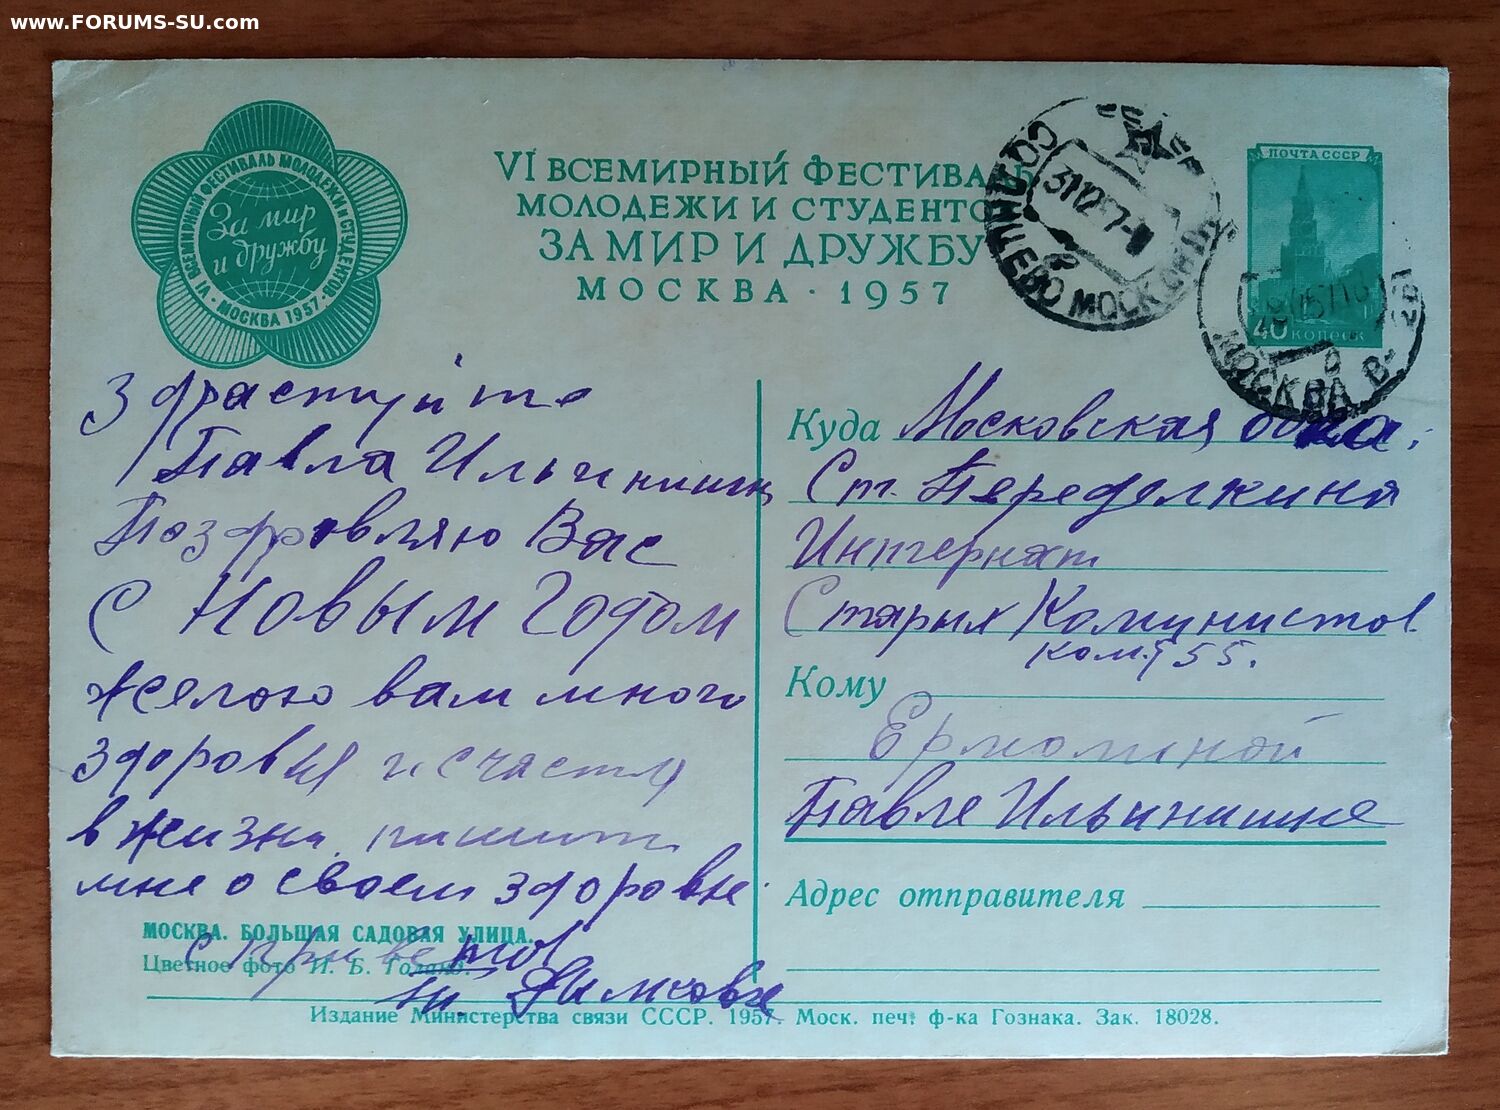 www.FORUMS-SU.com
VI ВСЕМИРНЫЙ ФЕСТИВАЛЬ МОЛОДЕЖИ И СТУДЕНТОВ · МОСКВА 1957 ·
За мир
и дружбу
VI ВСЕМИРНЫЙ ФЕСТИВАЛЬ
МОЛОДЕЖИ И СТУДЕНТОВ
ЗА МИР И ДРУЖБУ
МОСКВА · 1957
СОЛНЦЕВО МОСКОВ
31 12 57
ПОЧТА СССР
40 копеек
МОСКВА В-261
Здраствуйте
Павла Ильинишн
Поздровляю Вас
С Новым Годом
желою вам много
здоровия и счастья
в жизни. пишит
мне о своем здоровье.
с приветов
МОСКВА. БОЛЬШАЯ САДОВАЯ УЛИЦА.
Цветное фото И. Б. Голанд.
Куда Московская
Ст. Переделкина
Интернат
Старых Комунистов.
ком. 55.
Кому
Ермолиной
Павле Ильинишне
Адрес отправителя
Издание Министерства связи СССР. 1957. Моск. печ. ф-ка Гознака. Зак. 18028.